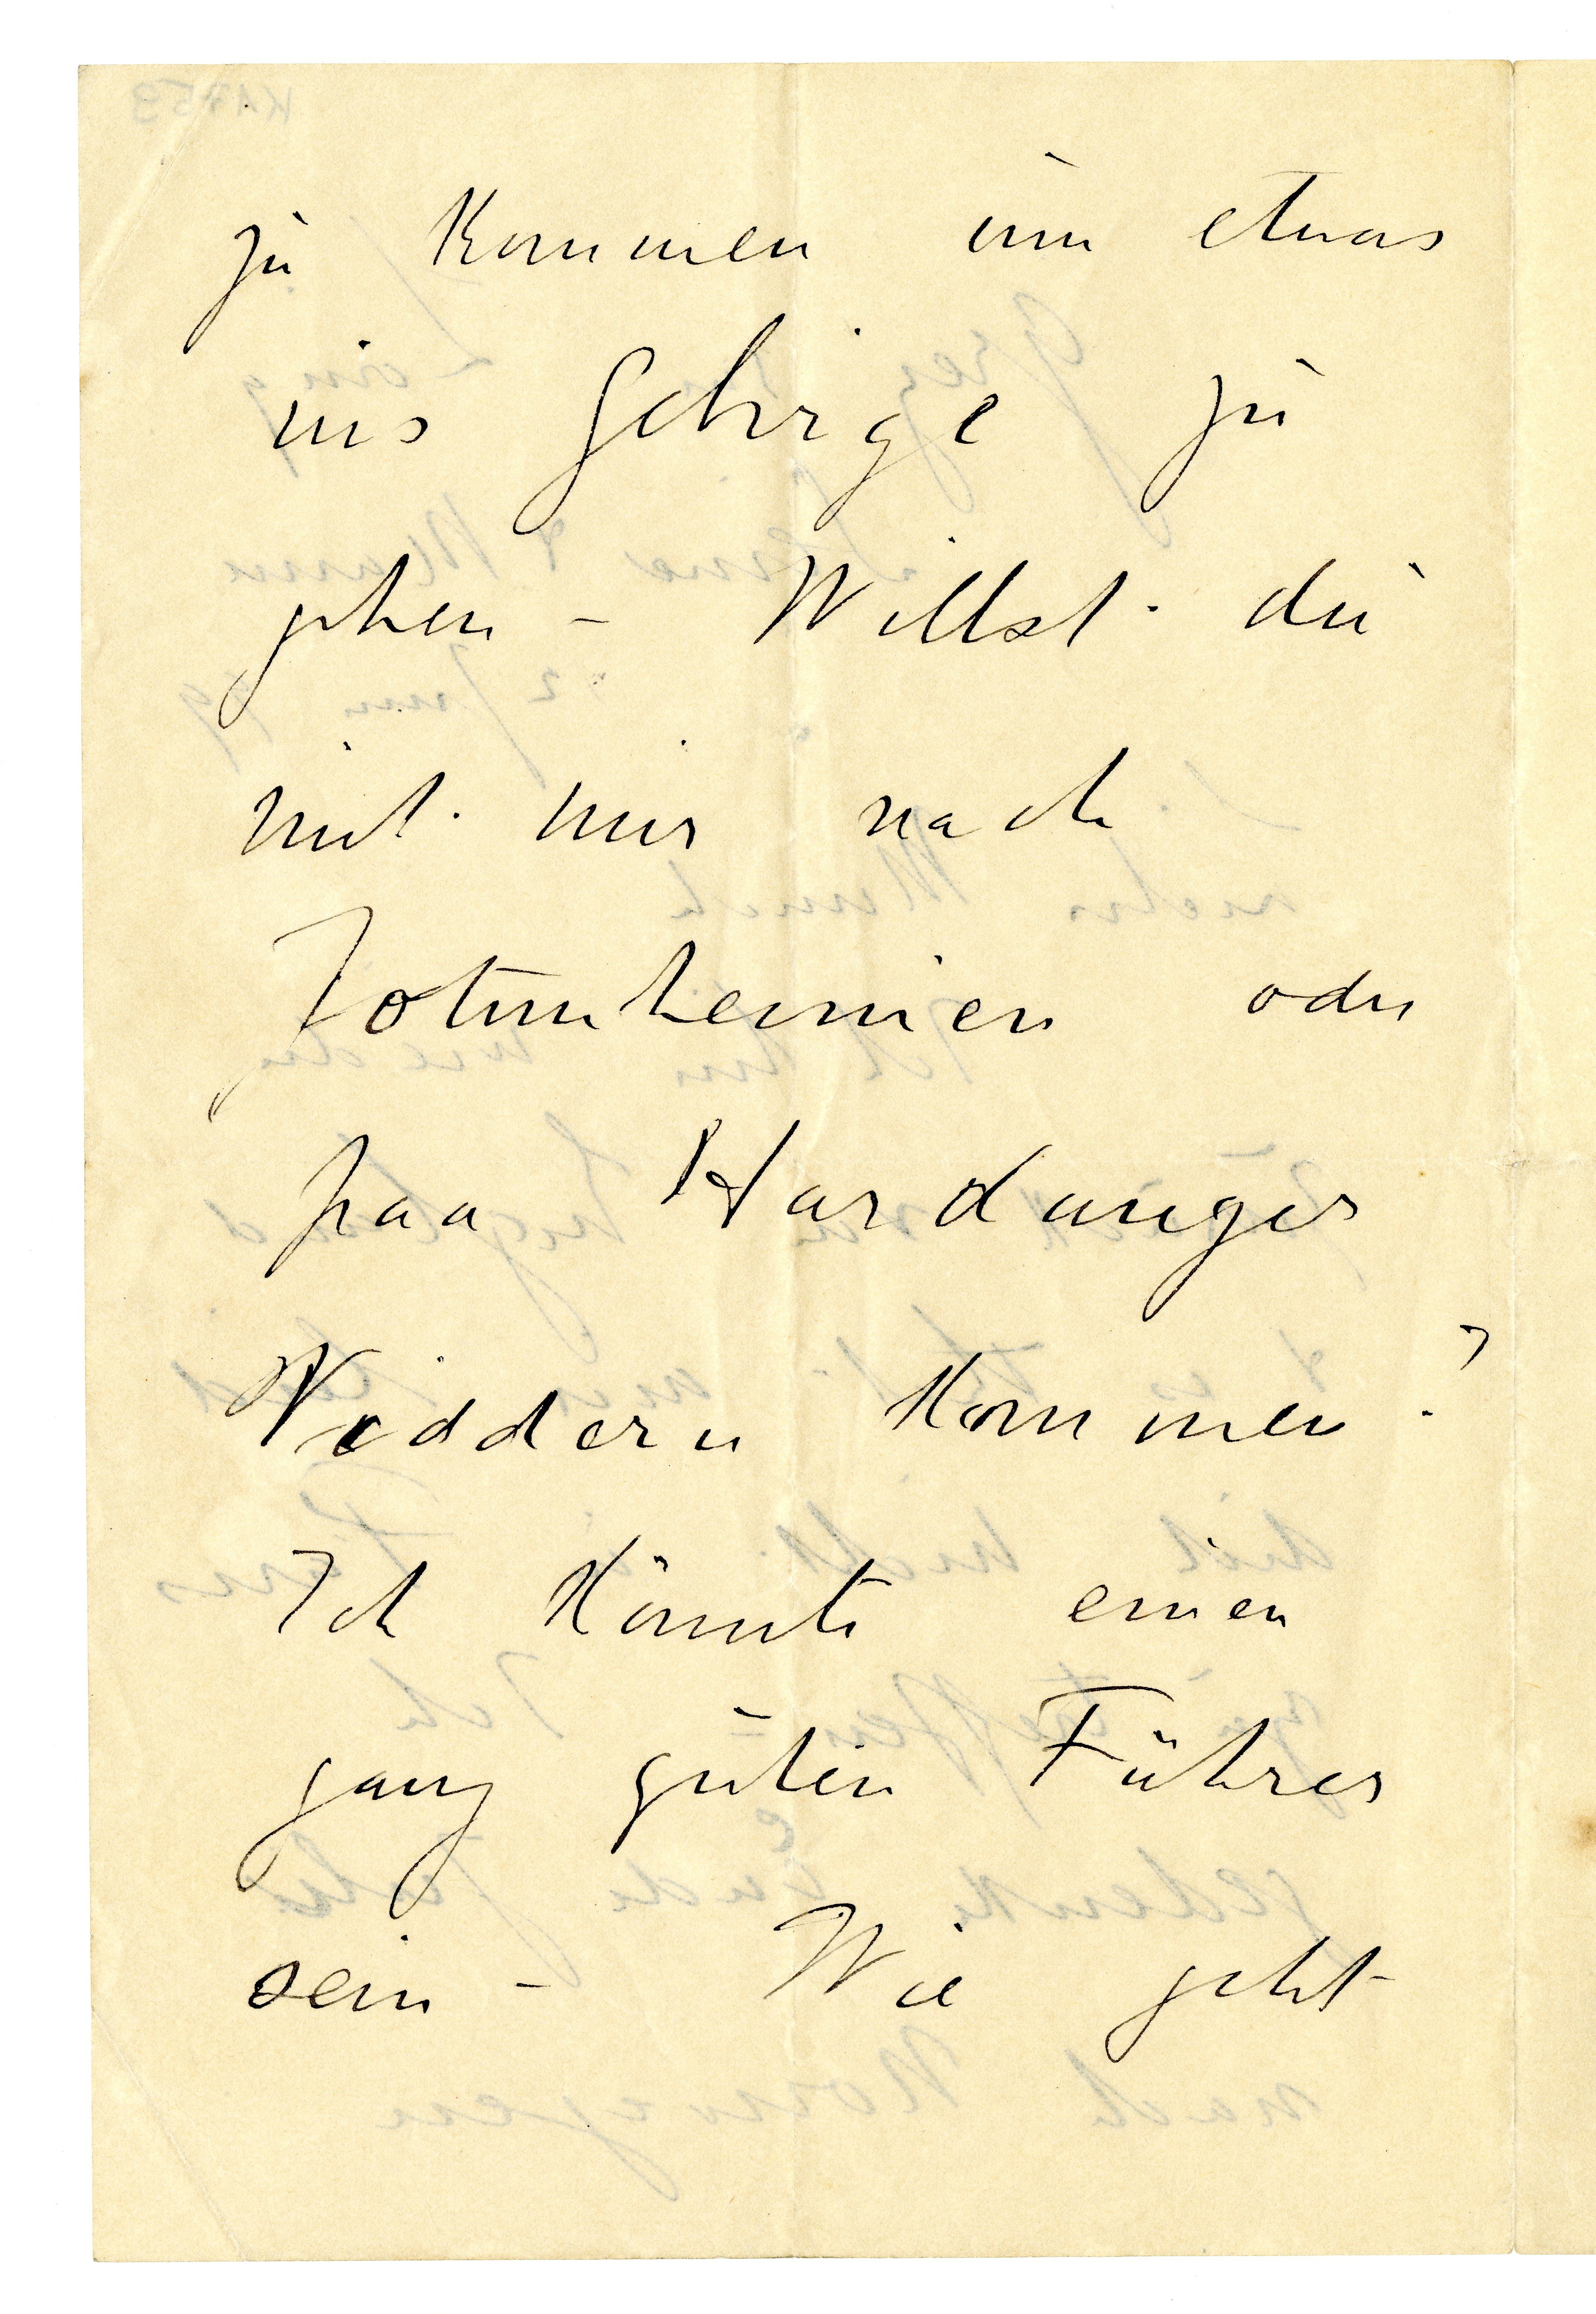 zu kommen um etwas
ins Gebirge zu
gehen – Willst du
mit mir nach
Jotunheimen oder
paa Hardanger
Vidderu kommen?
Ich könnte einen
ganz guten Führer
sein – Wie geht